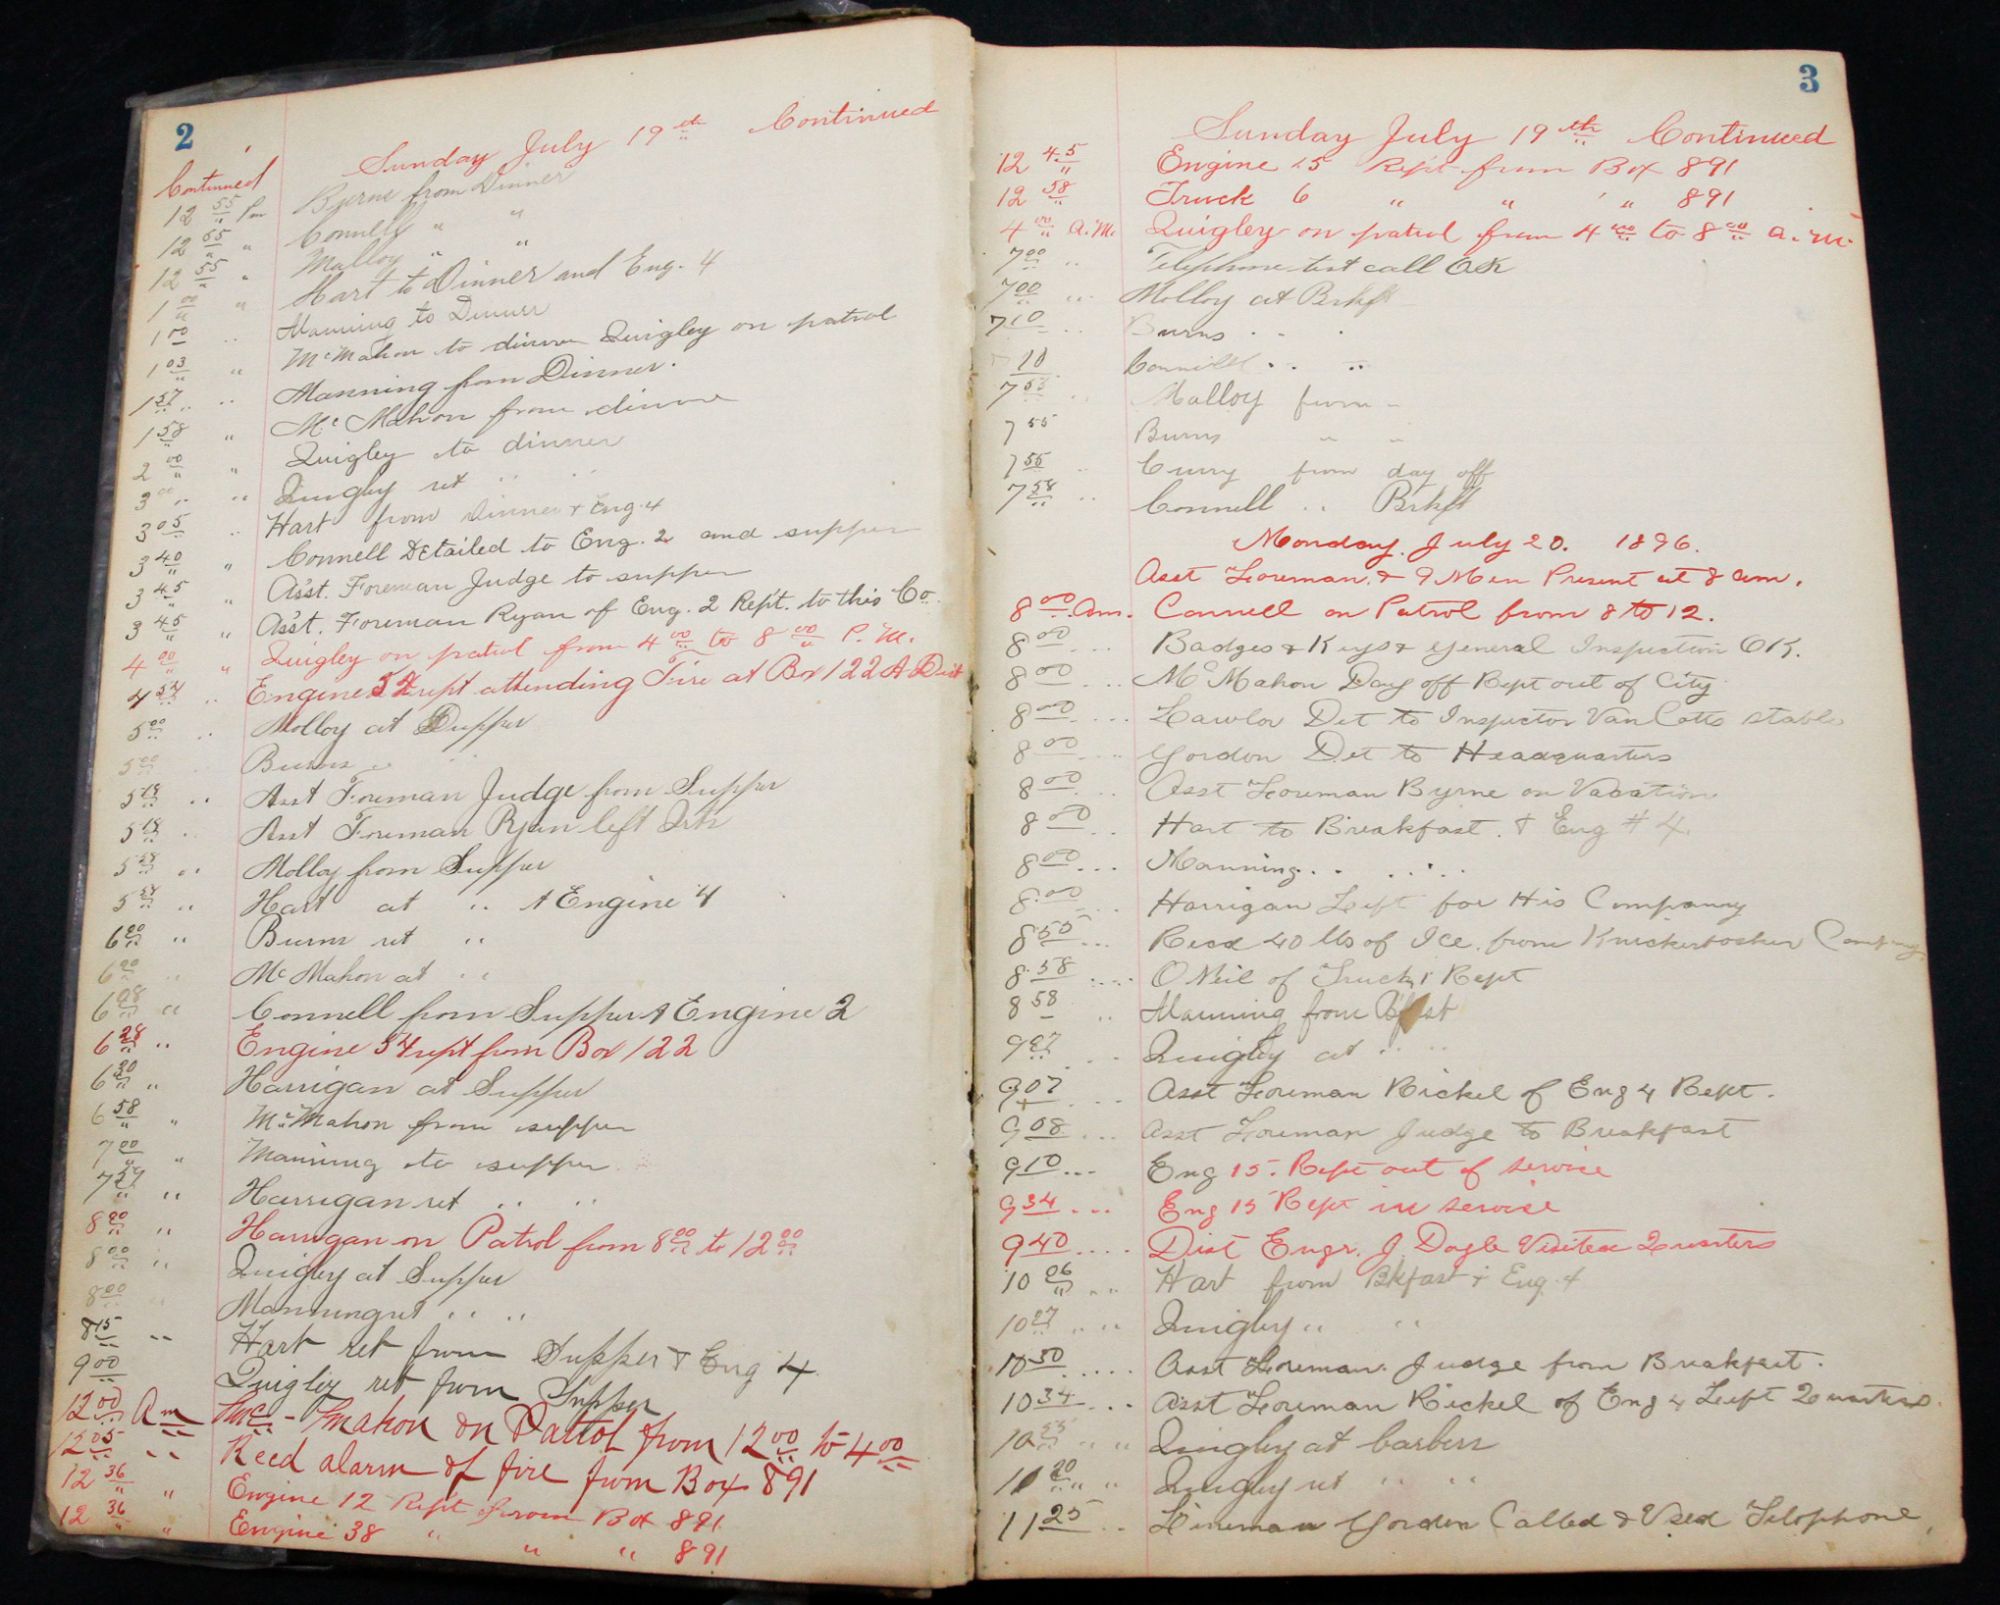 2
Sunday July 19th Continued
Continued
12 55 Pm Byrne from Dinner
12 55 " Connell " "
12 55 " Malloy " "
1 00 " Hart to Dinner and Eng. 4
1 00 " Manning to Dinner
1 03 " McMahon to dinner Quigley on patrol
1 57 " Manning from Dinner.
1 58 " McMahon from dinner
2 00 " Quigley to dinner
3 00 " Quigley ret " "
3 05 " Hart from Dinner & Eng. 4
3 40 " Connell Detailed to Eng. 2 and supper
3 45 " Asst. Foreman Judge to supper
3 45 " Asst. Foreman Ryan of Eng. 2 Rept. to this Co.
4 00 " Quigley on patrol from 4 00 to 8 00 P.M.
4 54 " Engine 54 rept attending Fire at Box 122 A Dist
5 00 " Molloy at Supper
5 00 " Burns " "
5 18 " Asst Foreman Judge from Supper
5 18 " Asst Foreman Ryan left Qrts
5 58 " Molloy from Supper
5 58 " Hart at " & Engine 4
6 00 " Burns ret "
6 00 " McMahon at "
6 08 " Connell from Supper & Engine 2
6 28 " Engine 54 rept from Box 122
6 30 " Harrigan at Supper
6 58 " McMahon from supper
7 00 " Manning to supper
7 27 " Harrigan ret " "
8 00 " Harrigan on Patrol from 8 00 to 12 00
8 00 " Quigley at Supper
8 00 " Manning ret " "
8 15 " Hart ret from Supper & Eng 4
9 00 Quigley ret from Supper
12 00 Am McMahon on Patrol from 12 00 to 4 00
12 05 " Recd alarm of fire from Box 891
12 36 " Engine 12 Rept from Box 891
12 36 " Engine 38 " " " 891
3
Sunday July 19th Continued
12 45 Engine 15 Rept from Box 891
12 58 Truck 6 " " " 891
4 00 A.M. Quigley on patrol from 4 00 to 8 00 a.m.
7 00 " Telephone test call OK
7 00 " Molloy at Brkft
7 10 " Burns " "
10 Connell " "
7 53 " Malloy from "
7 55 Burns " "
7 55 " Curry from day off
7 58 " Connell " Brkft
Monday. July 20. 1896.
Asst Foreman. & 9 Men Present at 8 am.
8 00 Am. Connell on Patrol from 8 to 12.
8 00 " Badges & Keys & general Inspection OK.
8 00 " McMahon Day off Rept out of City
8 00 " Lawlor Det to Inspector Van Cotts stable
8 00 " Gordon Det to Headquarters
8 00 " Asst Foreman Byrne on Vacation
8 00 " Hart to Breakfast. & Eng # 4.
8 00 " Manning " "
8 00 " Harrigan Left for His Company
8 50 " Recd 40 lbs of Ice. from Knickerbocker Company
8 58 " O Neil of Truck 1 Rept
8 58 " Manning from Bfast
9 07 " Quigley at " "
9 07 " Asst Foreman Rickel of Eng 4 Rept.
9 08 " Asst Foreman Judge to Breakfast
9 10 " Eng 15. Rept out of service
9 34 " Eng 15 Rept in service
9 40 " Dist Engr. J. Dogle Visited Quarters
10 06 " Hart from Bkfast & Eng. 4
10 07 " Quigley " "
10 30 " Asst Foreman. Judge from Breakfast.
10 34 " Asst Foreman Rickel of Eng 4 Left Quarters.
10 55 " Quigley at barbers
11 20 " Quigley ret " "
11 25 " Lineman Gorden Called & Used Telephone.